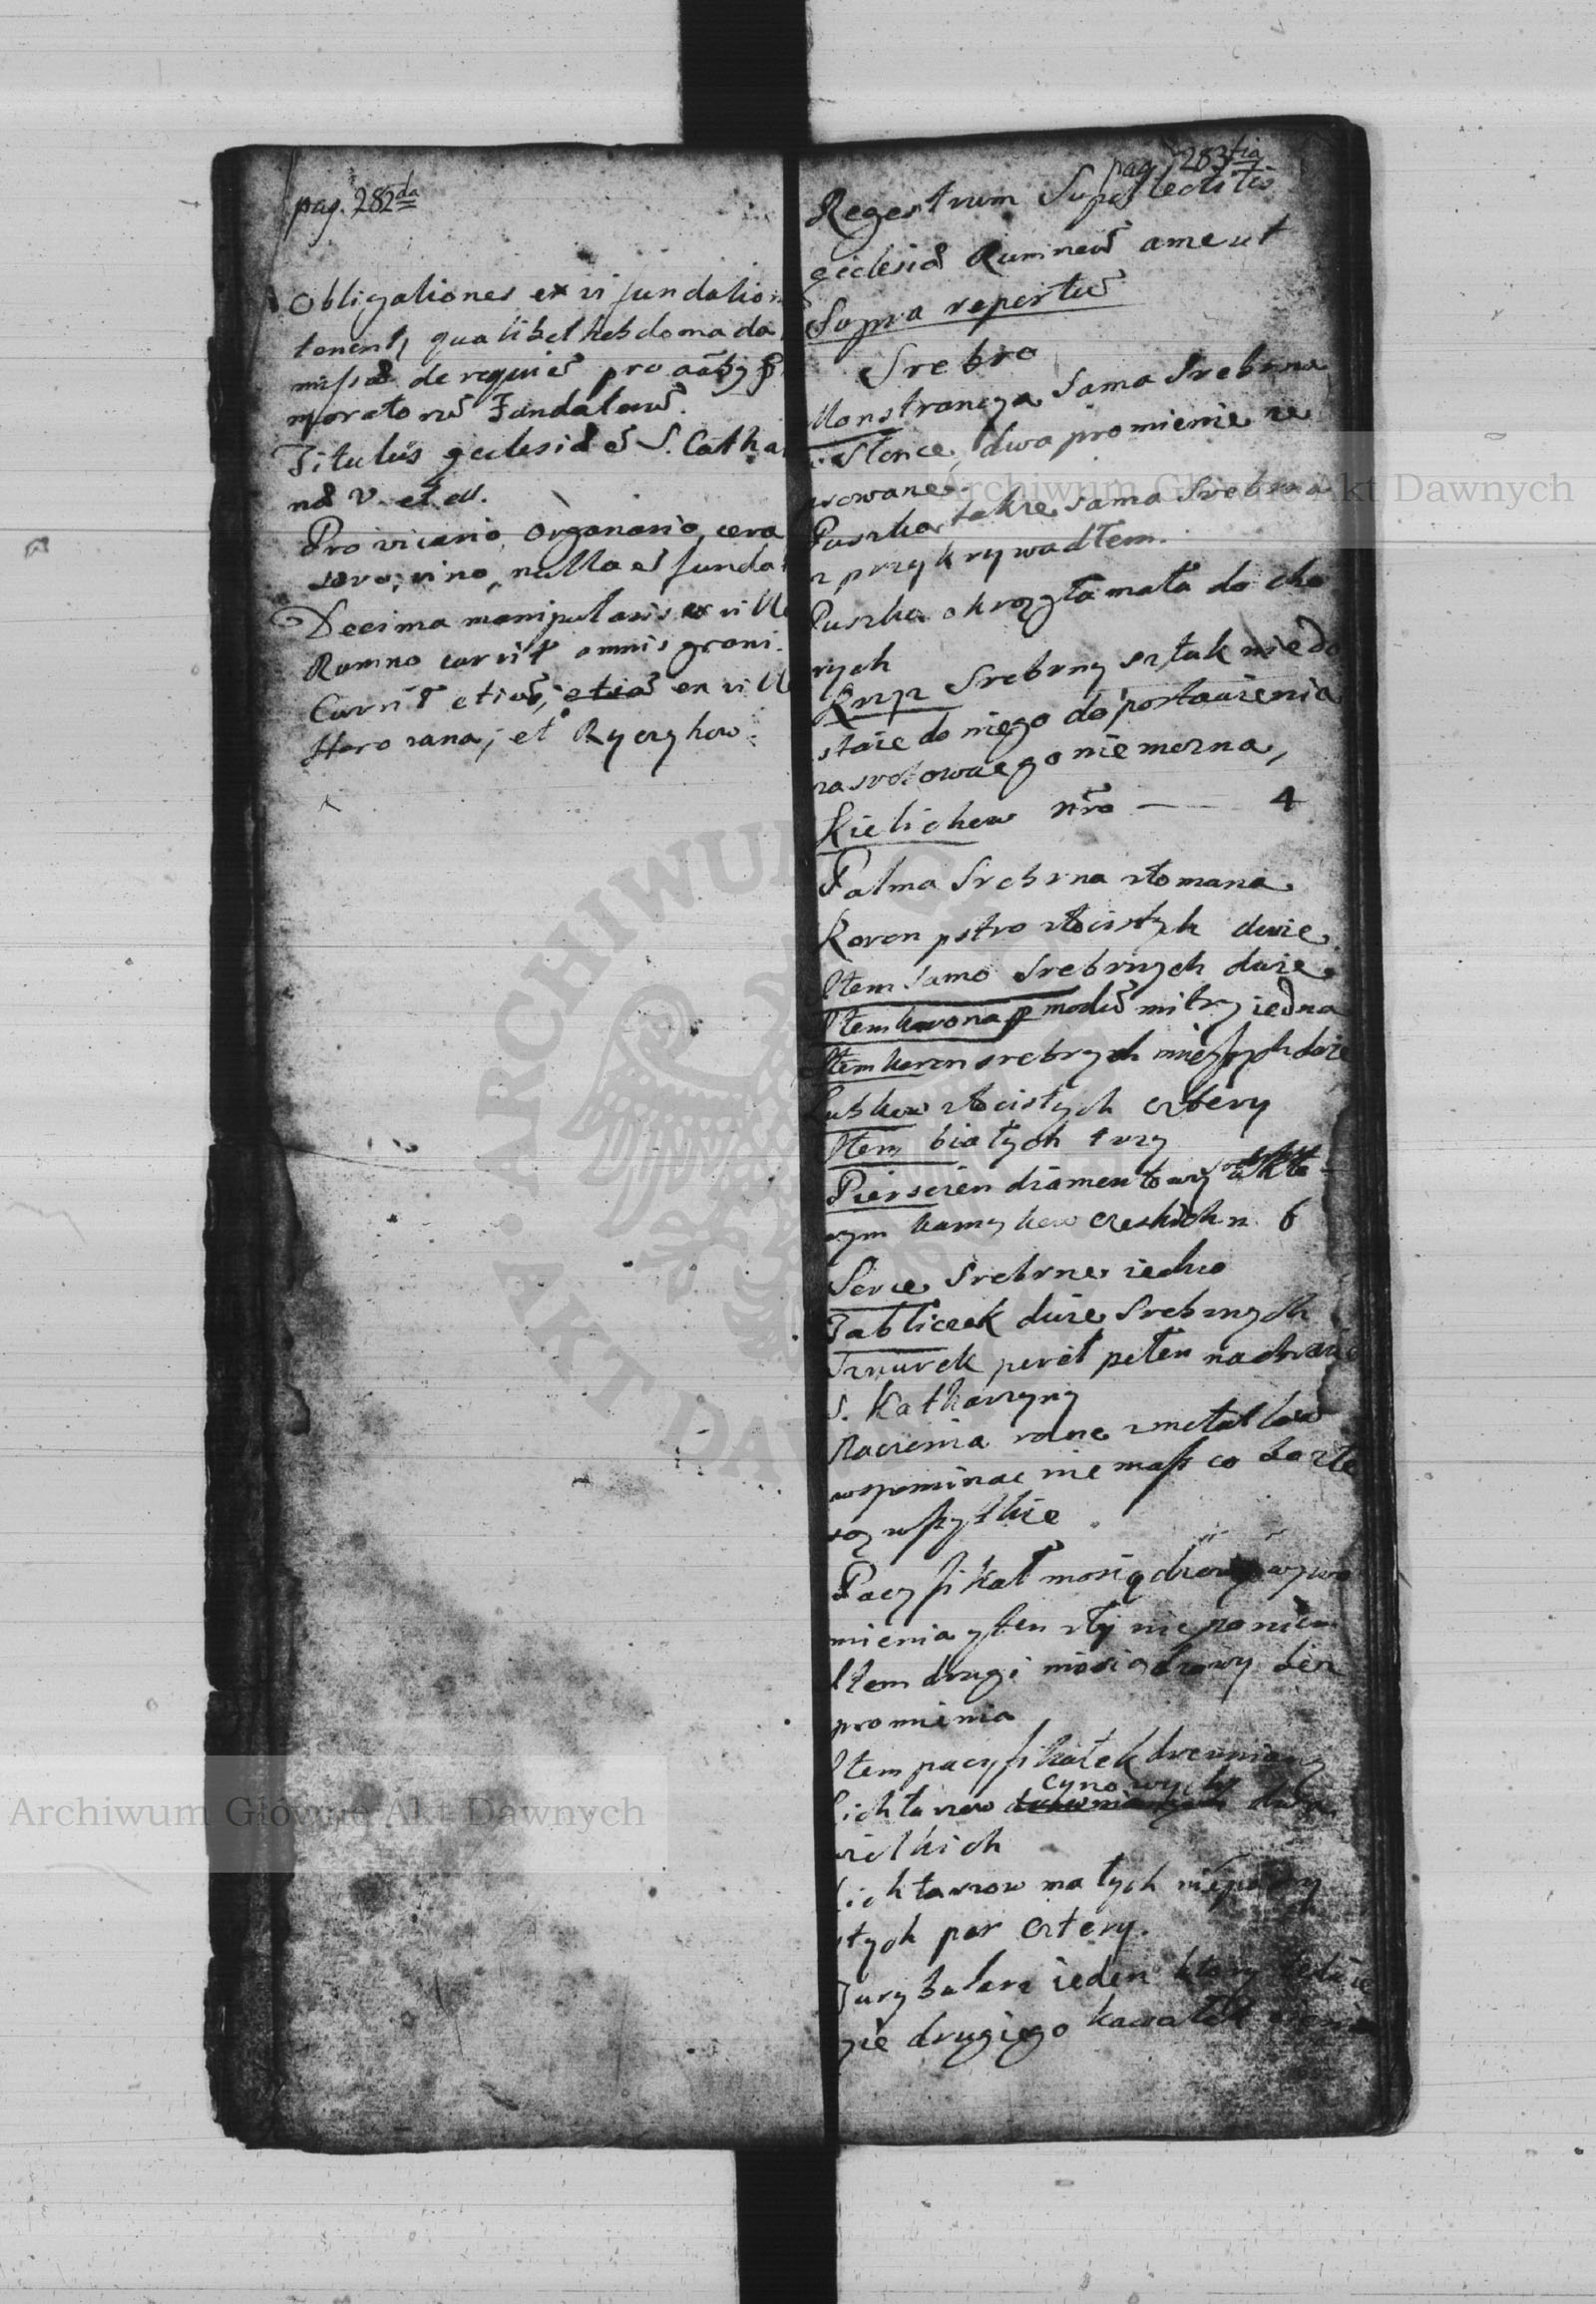 pag. 282da
Obligationes ex vi fundation
tenent, qualibet hebdomada
missā de requiē pro
moratorū Fundatorū.
Titulus ecclesiæ ē S. Catha
næ V. et M.
Pro vicario, organario, cera
vino, nulla ē funda
Decima manipularis ex vill
Rumno omnis grani.
etiā, etiā ex vill
et Ryczyhow.
pag. 283tia
Regestrum Supellectilis
ecclesiæ Rumneń a me ut
Supra repertū
Srebro
Monstrancya Sama Srebrna
Słonce, dwa promienie ze
psowane
Puszka takze sama Srebrna
z przykrywadłem.
Puszka okrągła mała do cho
rych
Krzyz Srebrny sztuk niedo
staie do niego do postawienia
go niemozna,
Kielichow nro — 4
Palma Srebrna złomana
Koron pstro złocistych dwie
Item Samo Srebrnych dwie
Item korona p modū mitry iedna
Item koron srebrnych mnieyszych dwie
Lubkow złocistych cztery
Item białych trzy
Pierscien diamentowy w kto
rym kamykow czeskich n. 6
Serce Srebrne iedno
Tabliczek dwie Srebrnych
Sznurek pereł pełen na obrazie
S. Katharzyny
Naczenia rozne z metallow
wspominac nie mass co bo złe
są wszytkie
Pacyfikał mosiądzowy
mienia y ten zły nie
Item drugi mosiądzowy bez
promienia
Item pacyfikałek drewniany
cynowych
Lichtarzow drewnianych dwa
wielkich
Lichtarzow małych
stych par cztery.
Turybularz ieden ktory
drugiego kawałek
Archiwum Główne Akt Dawnych
Archiwum Główne Akt Dawnych
ARCHIWUM GŁÓWNE AKT DAWNYCH